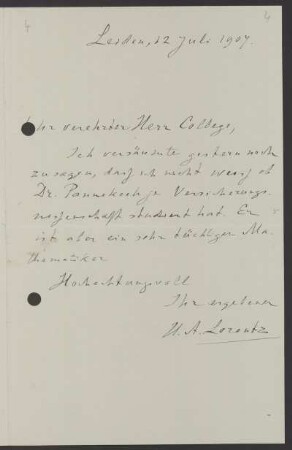 4
4
Leiden, 12 Juli 1907.
Sehr verehrter Herr College,
Ich versäumte gestern noch
zu sagen, dass ich nicht weiss ob
Dr. Pannekoek je Versicherungs-
wissenschaft studiert hat. Er
ist aber ein sehr tüchtiger Ma-
thematiker
Hochachtungsvoll
Ihr ergebener
H. A. Lorentz